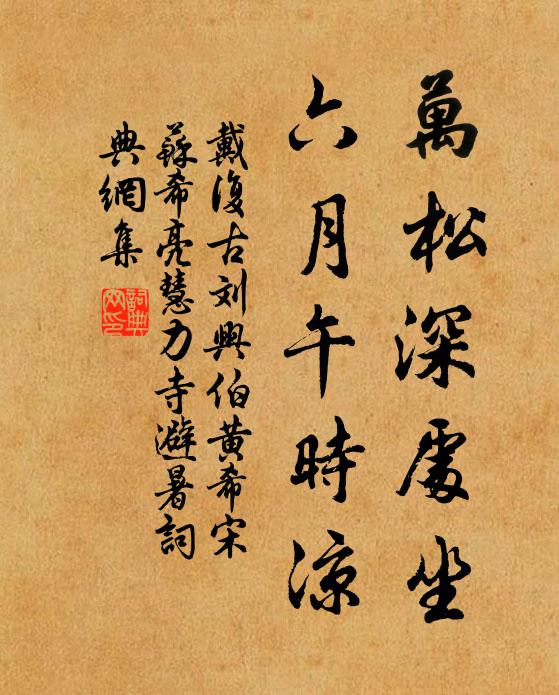 萬松深處坐
六月午時凉
戴復古刘興伯黄希宋
蘇希亮慧力寺避暑詞
典網集
詞典
网印